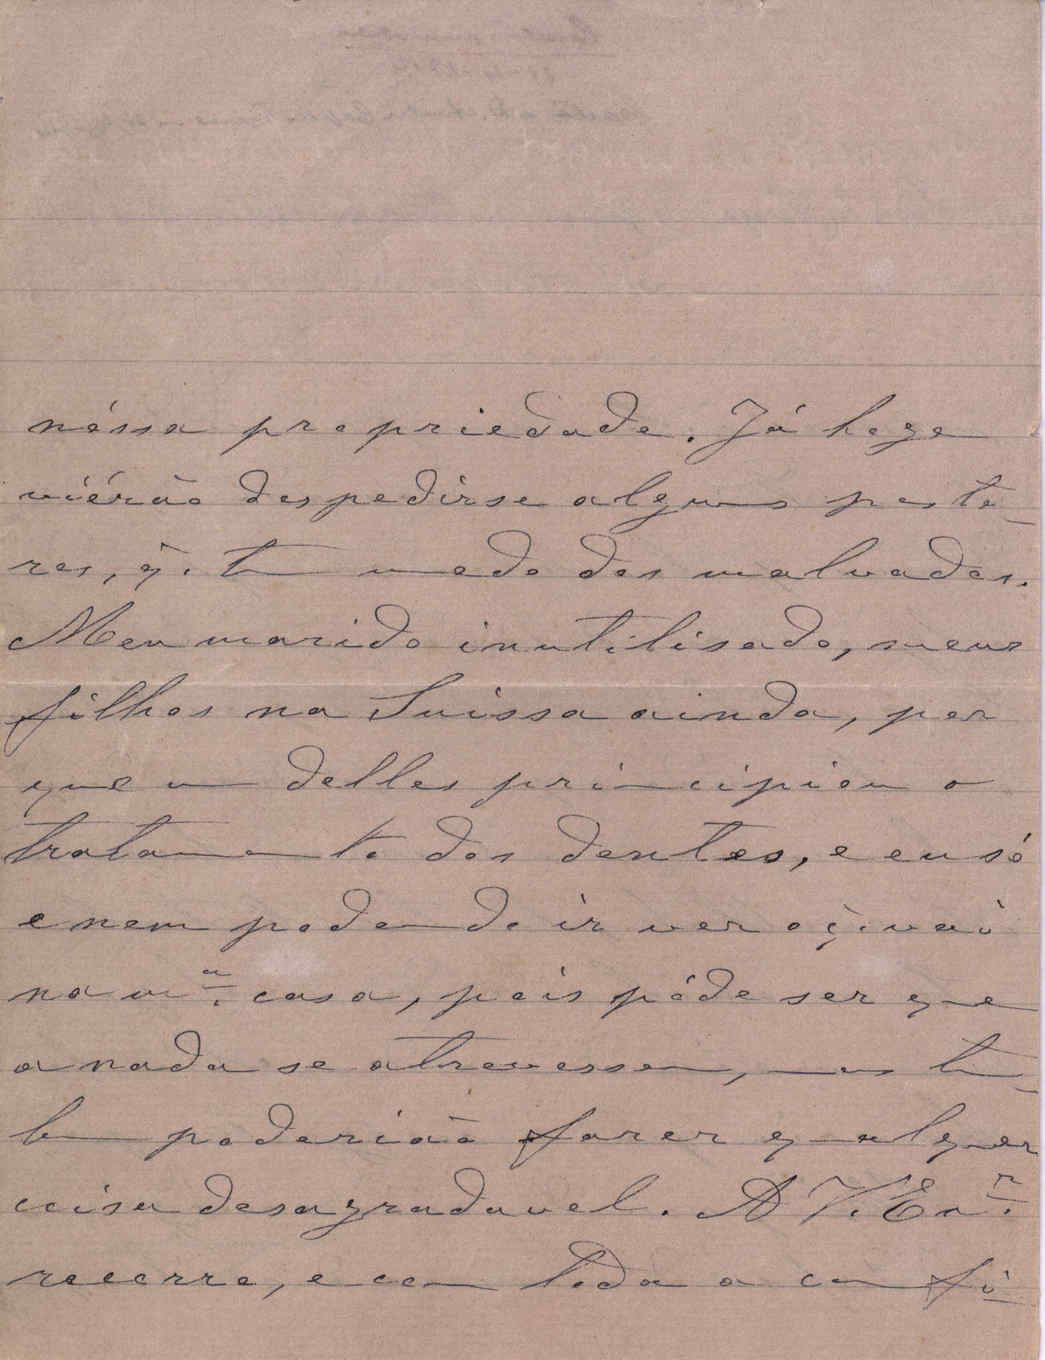 nóssa propriedade. Já hoge
viérão despedirse alguns pasto-
res, q. tem medo dos malvados.
Meu marido inutilisado, meus
filhos na Suissa ainda, por
que um delles principiou o
tratamento dos dentes, e eu só
e nem podendo ir ver o q. vai
na m.ª casa, pois póde ser que
a nada se atrevessem, mas tam-
bem poderião fazer qualquer
coisa desagradavel. A V. Ex.ª
recorro, e com toda a confi-